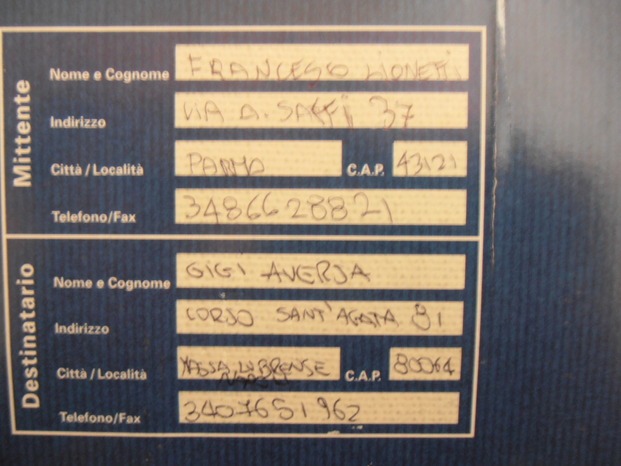 Mittente
Nome e Cognome FRANCESCO LIONETTI
Indirizzo VIA A. SAFFI 37
Città / Località PARMA C.A.P. 43121
Telefono/Fax 3486628821
Destinatario
Nome e Cognome GIGI AVERSA
Indirizzo CORSO SANT'AGATA 81
Città / Località MASSA LUBRENSE C.A.P. 80064
NAPOLI
Telefono/Fax 3407651962